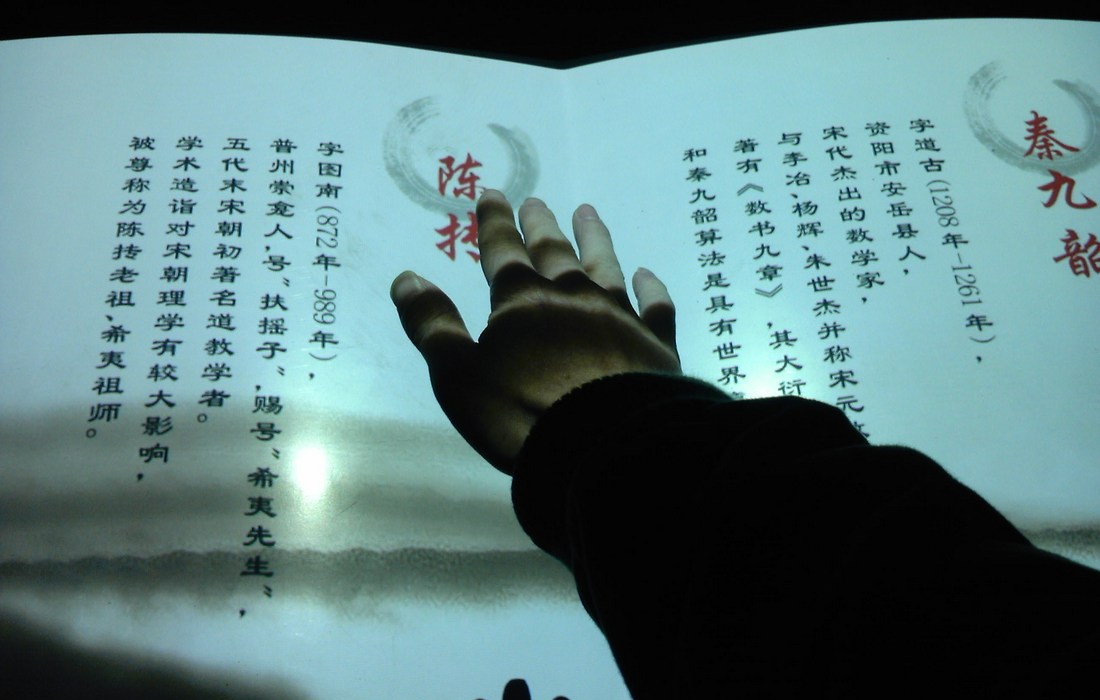 秦九韶
字道古(1208年-1261年),
资阳市安岳县人,
宋代杰出的数学家,
与李冶、杨辉、朱世杰并称宋元
著有《数书九章》,其大衍
和秦九韶算法是具有世界
陈抟
字图南(872年-989年),
普州崇龛人,号“扶摇子”,赐号“希夷先生”,
五代末宋朝初著名道教学者。
学术造诣对宋朝理学有较大影响,
被尊称为陈抟老祖、希夷祖师。